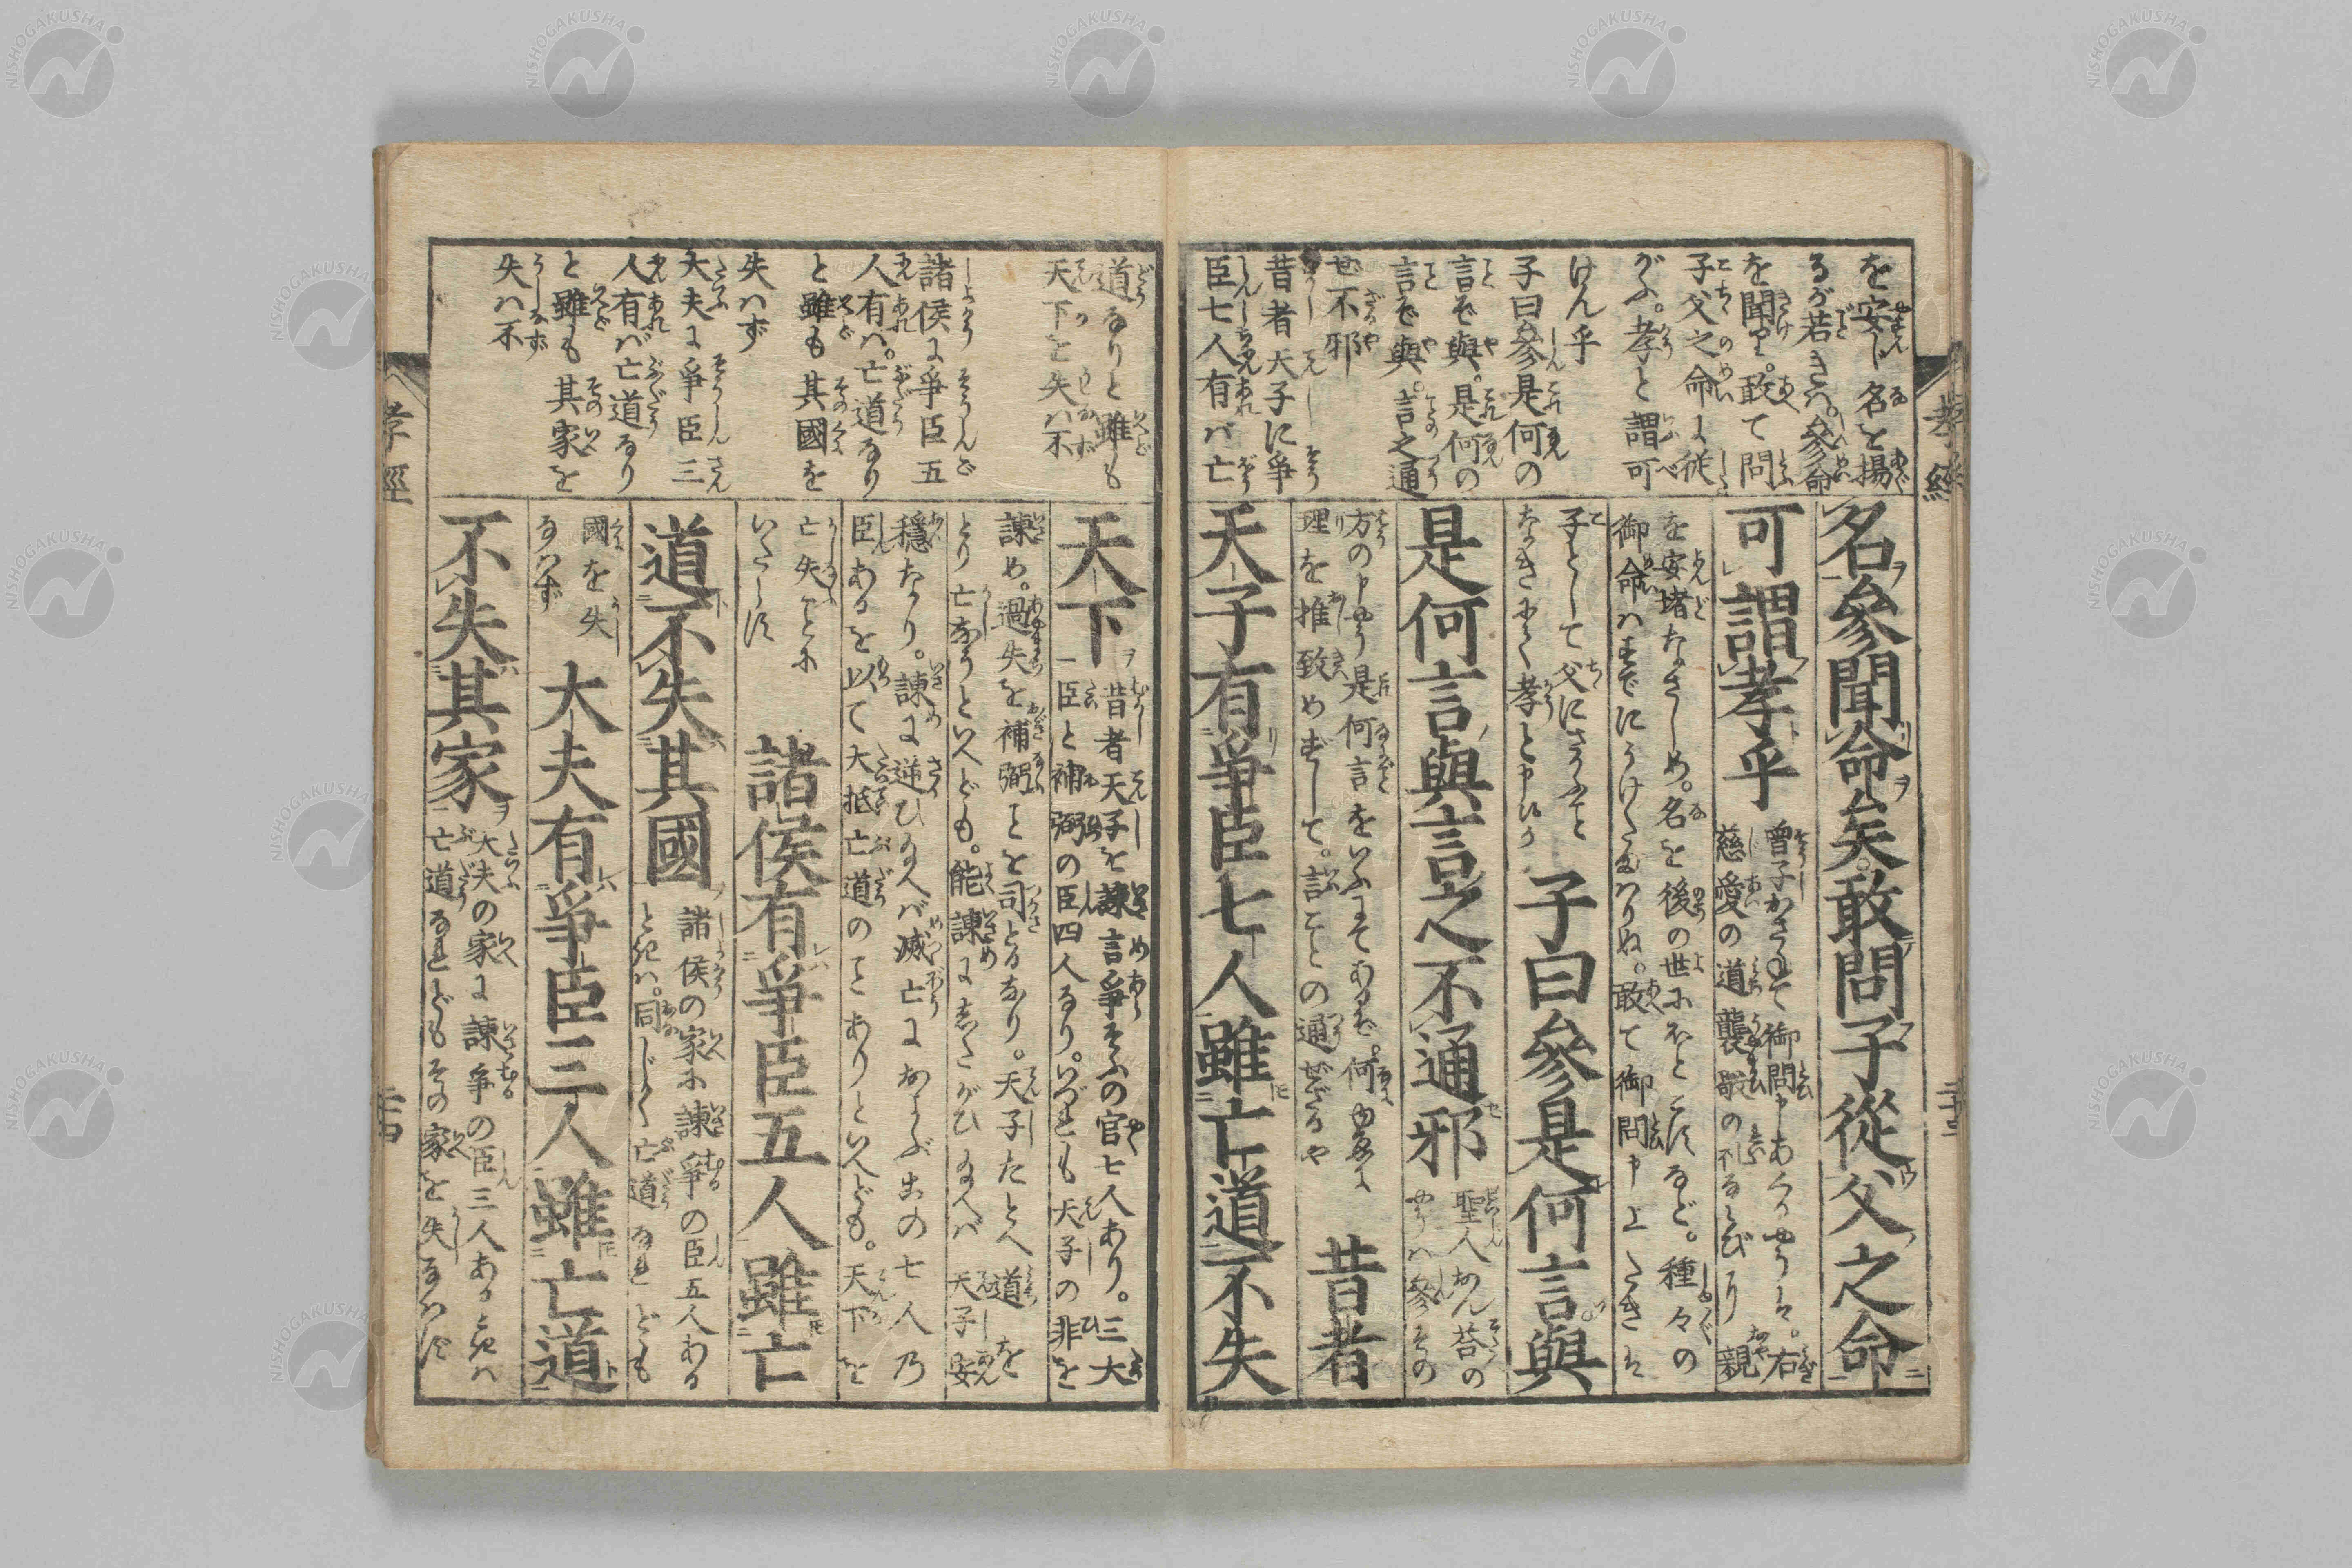 を安じ名を揚
るが若きハ。參命
を聞り。敢て問
子父之命に従
がふ。孝と謂可
けん乎
子曰參是何の
言ぞ與。是何の
言ぞ與。言之通
せ不邪
昔者天子に爭
臣七人有バ亡
名參聞命矣。敢問子從父之命
可謂孝乎
曽子かさねて御問申あぐるやうは。右
慈愛の道襲敬の礼るゐび親
を安堵なさしめ。名を後の世にあとこすなど。種々の
御命ハまでにうけたまハりぬ。敢て御問申上たきは
子として父にさからふと
なきにて孝と申候か
子曰參是何言與
是何言與言之不通邪
聖人あん荅の
やうハ參その
方の申やう是何言をいふにてあるぞ。何ゆゑに
理を推致めずして。言ことの通せざるや
昔者
天子有爭臣七人雖亡道不失
道なりと雖も
天下を失ハ不
諸侯に爭臣五
人有ハ。亡道なり
と雖も其國を
失ハず
大夫に爭臣三
人有バ亡道なり
と雖も其家を
失ハ不
天下
昔者天子を諫言爭そふの官七人あり。三大
臣と補弼の臣四人なり。いづれも天子の非を
諫め。過失を補弼ことを司どるなり。天子たとへ道を
とり亡なうといへども。能諫にしたがひ給へバ天子安
穏なり。諫に逆ひ給へバ滅亡におよぶ古の七人乃
臣あるを以て大抵亡道のことありといへども。天下を
亡失ことに
いたらず
諸侯有爭臣五人雖亡
道不失其國
諸侯の家に諫爭の臣五人ある
ときハ。同じく亡道なれども
國を失
なハず
大夫有爭臣三人雖亡道
不失其家
大夫の家に諫爭の臣三人あるときハ
亡道なれどもその家を失なハず
孝經
孝經